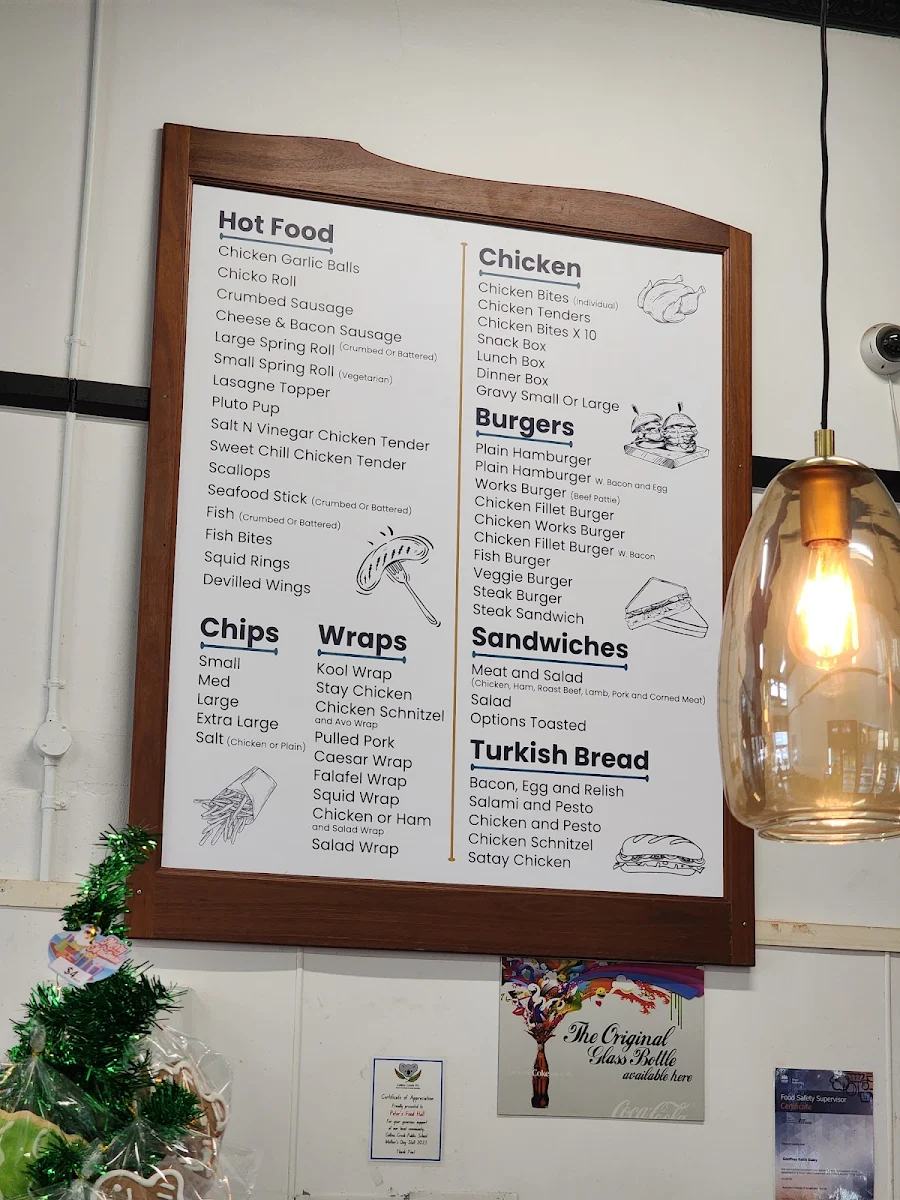 Hot Food
Chicken Garlic Balls
Chicko Roll
Crumbed Sausage
Cheese & Bacon Sausage
Large Spring Roll (Crumbed Or Battered)
Small Spring Roll (Vegetarian)
Lasagne Topper
Pluto Pup
Salt N Vinegar Chicken Tender
Sweet Chill Chicken Tender
Scallops
Seafood Stick (Crumbed Or Battered)
Fish (Crumbed Or Battered)
Fish Bites
Squid Rings
Devilled Wings
Chips
Small
Med
Large
Extra Large
Salt (Chicken or Plain)
Wraps
Kool Wrap
Stay Chicken
Chicken Schnitzel
and Avo Wrap
Pulled Pork
Caesar Wrap
Falafel Wrap
Squid Wrap
Chicken or Ham
and Salad Wrap
Salad Wrap
Chicken
Chicken Bites (Individual)
Chicken Tenders
Chicken Bites X 10
Snack Box
Lunch Box
Dinner Box
Gravy Small Or Large
Burgers
Plain Hamburger
Plain Hamburger W. Bacon and Egg
Works Burger (Beef Pattie)
Chicken Fillet Burger
Chicken Works Burger
Chicken Fillet Burger W. Bacon
Fish Burger
Veggie Burger
Steak Burger
Steak Sandwich
Sandwiches
Meat and Salad
(Chicken, Ham, Roast Beef, Lamb, Pork and Corned Meat)
Salad
Options Toasted
Turkish Bread
Bacon, Egg and Relish
Salami and Pesto
Chicken and Pesto
Chicken Schnitzel
Satay Chicken
$4
The Original
Glass Bottle
available here
Coke
Coca-Cola
Certificate of Appreciation
Proudly presented to
Peter's Food Hall
For your generous support
of our local community.
Public School
Mother's Day Stall 2023
Thank You!
Food Safety Supervisor
Certificate